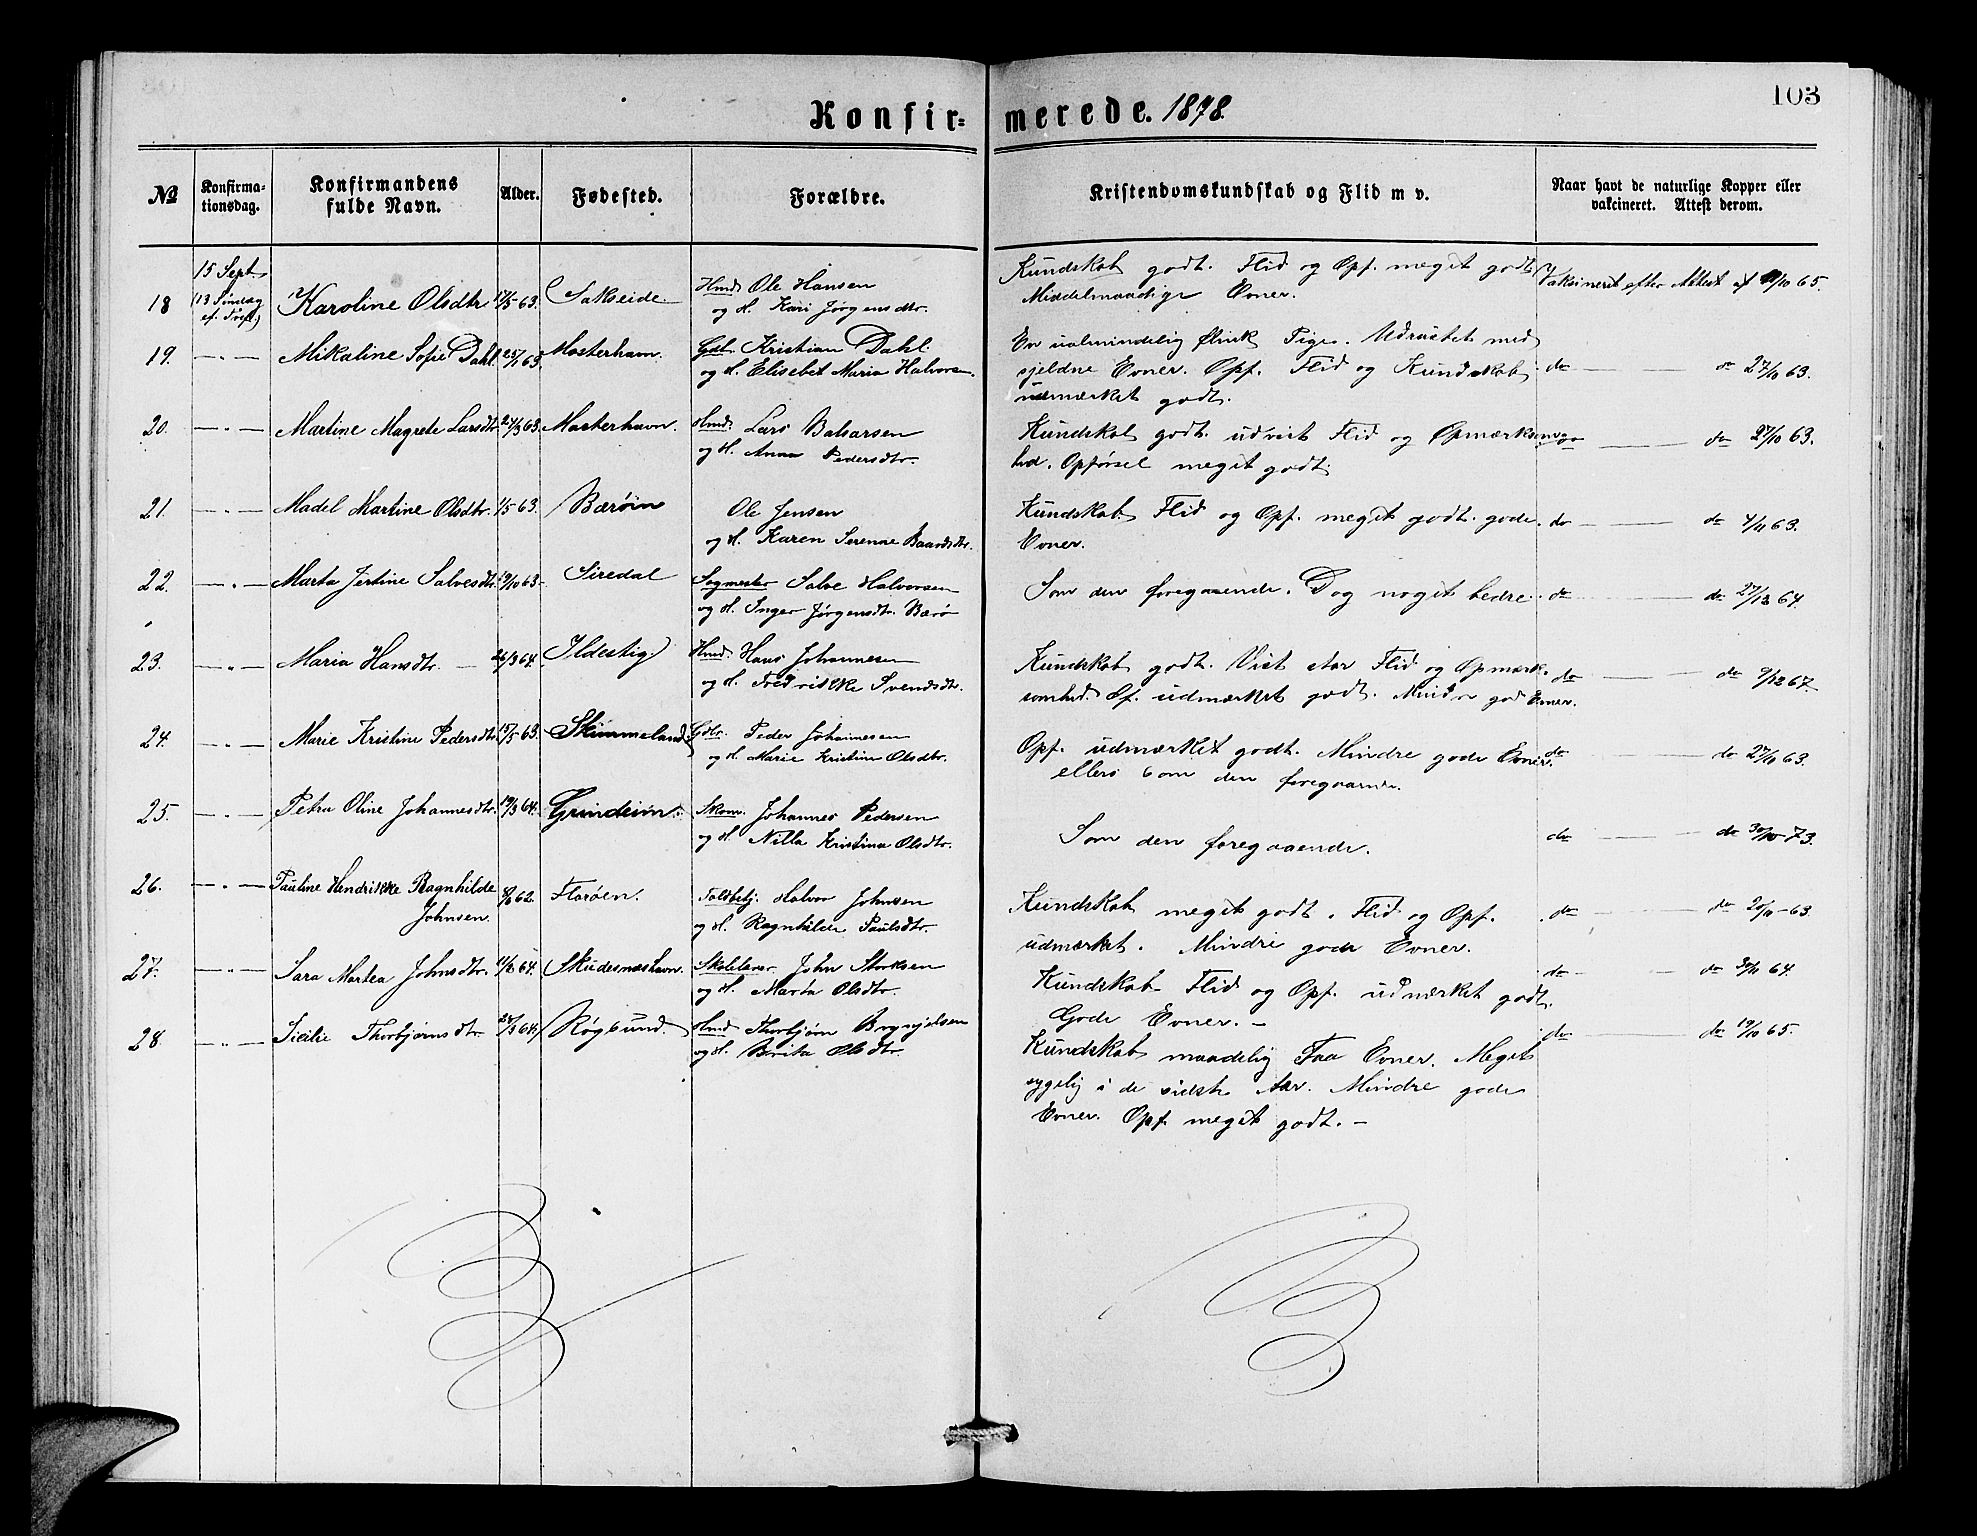 103
Konfir= merede. 1878.
№ Konfirma-tionsdag. Konfirmandens fulde Navn. Alder. Fødested. Forældre. Kristendomskundskab og Flid m v. Naar havt de naturlige Kopper eller vakcineret. Attest derom.
15 Sept.
18 (13 Søndag Karoline Olsdtr 17/5 63. Sakseide. Hmd. Ole Hansen Kundskab godt. Flid og Opf. meget godt Vaksineret efter Attest af 65.
ef. Tref.) og H. Kari Jørgensdtr. Middelmaadige Evner.
19. — " — Mikaline Sofie Dahl 63. Mosterhavn. Gdbr. Kristian Dahl. En ualmindelig flink Pige. Udrustet med
og H. Elisebet Maria Halvors. sjeldne Evner. Opf. Flid og Kundskab do — do 27/10 63.
udmærket godt.
20. — " — Martine Magrete Larsdtr. 63. Mosterhavn. Hmd. Lars Balsarsen Kundskab godt. udvist Flid og Opmærksom- do — do 27/10 63.
og H. Anna Pedersdtr. hed. Opførsel meget godt.
21. — " — Madel Martine Olsdtr. 1/5 63. Bærøen Ole Jensen Kundskab Flid og Opf. meget godt. gode do — do 4/11 63.
og H. Karen Serenne Baardsdtr. Evner.
22. — " — Marta Jertine Salvesdtr. 19/10 63. Siredal Sogmester Salve Halvorsen Som den foregaaende. Dog noget bedre. do — do 64.
og H. Inger Jørgensdtr. Bærø
23. — " — Maria Hansdtr. — 26/3 64. Ildestig. Hmd. Hans Johannesen Kundskab godt. Vist stor Flid og Opmærk- do — do 9/12 67
og H. Fredrikke Svendsdtr. somhed. Of. udmærket godt. Mindre god Evner.
24. — " — Marie Kristine Pedersdtr. 15/5 63. Skimmeland. Gdbr. Peder Johannesen Opf. udmærket godt. Mindre gode Evner. do — do 27/10 63.
og H. Marie Kristine Olsdtr. ellers som den foregaaende.
25. — " — Petra Oline Johannesdtr. 19/3 64. Grindeim. Skom. Johannes Pedersen Som den foregaaende. do — do 30/10 73.
og H. Nilla Kristina Olsdtr.
26. — " — Pauline Hendrikke Ragnhilde 62. Florøen. Toldbetj. Halvor Johnsen Kundskab meget godt. Flid og Opf. do — do 20/11 63.
Johnsen. og H. Ragnhilde Paulsdtr. udmærket. Mindre gode Evner.
27. — " — Sara Martea Johnsdtr. 64. Skudesnæshavn. Skolelærer John Storksen Kundskab Flid og Opf. udmærket godt. do — do 30/11 64.
og H. Marta Olsdtr. Gode Evner. —
28. — " — Sicilie Thorbjørnsdtr. 64. Røgsund. Hmd. Thorbjørn Brynjelsen Kundskab maadelig Faa Evner. Meget do — do 19/10 65.
og H. Brita Olsdtr. sygelig i de sidste Aar. Mindre gode
Evner. Opf. meget godt. —